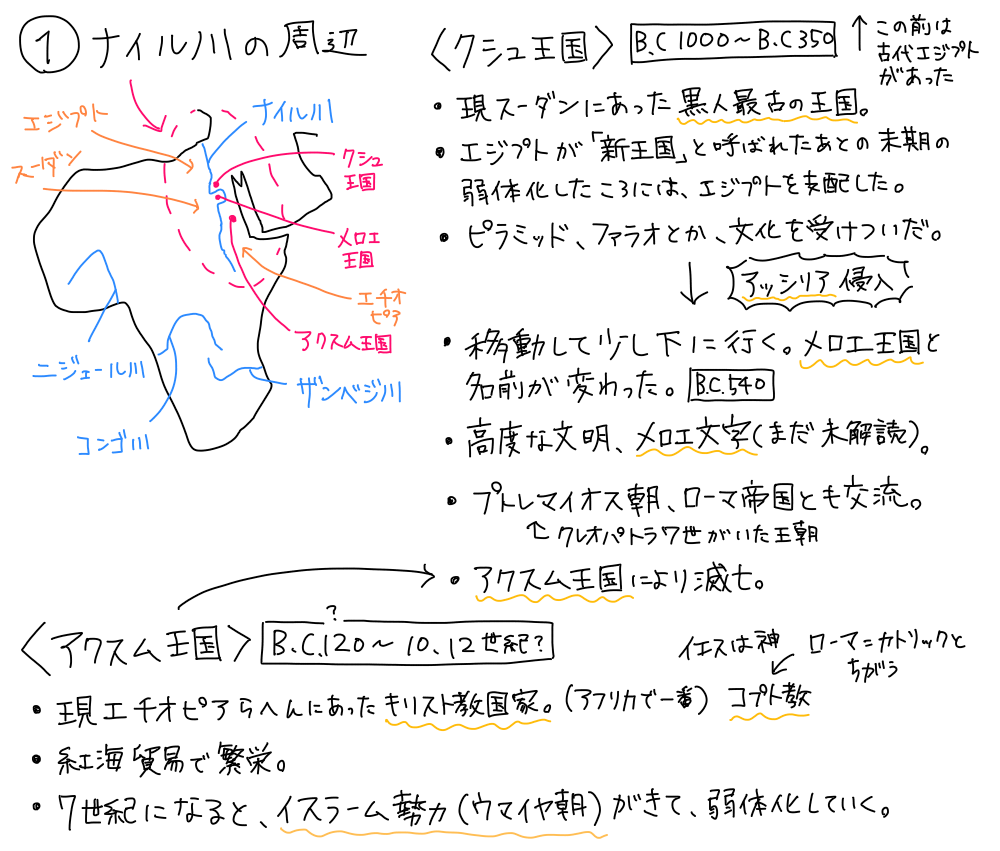 ① ナイル川の周辺
エジプト
スーダン
ナイル川
クシュ
王国
メロエ
王国
エチオ
ピア
アクスム王国
ニジェール川
コンゴ川
ザンベジ川
〈クシュ王国〉 B.C1000～B.C350 ↑ この前は
古代エジプト
があった
・現スーダンにあった黒人最古の王国。
・エジプトが「新王国」と呼ばれたあとの末期の
弱体化したころには、エジプトを支配した。
・ピラミッド、ファラオとか、文化を受けついだ。
↓ アッシリア侵入
・移動して少し下に行く。メロエ王国と
名前が変わった。B.C.540
・高度な文明、メロエ文字(まだ未解読)。
・プトレマイオス朝、ローマ帝国とも交流。
↑クレオパトラ7世がいた王朝
・アクスム王国により滅亡。
?
〈アクスム王国〉 B.C.120～10、12世紀?
・現エチオピアらへんにあったキリスト教国家。(アフリカで一番) コプト教
イエスは神
ローマ=カトリックと
ちがう
・紅海貿易で繁栄。
・7世紀になると、イスラーム勢力(ウマイヤ朝)がきて、弱体化していく。